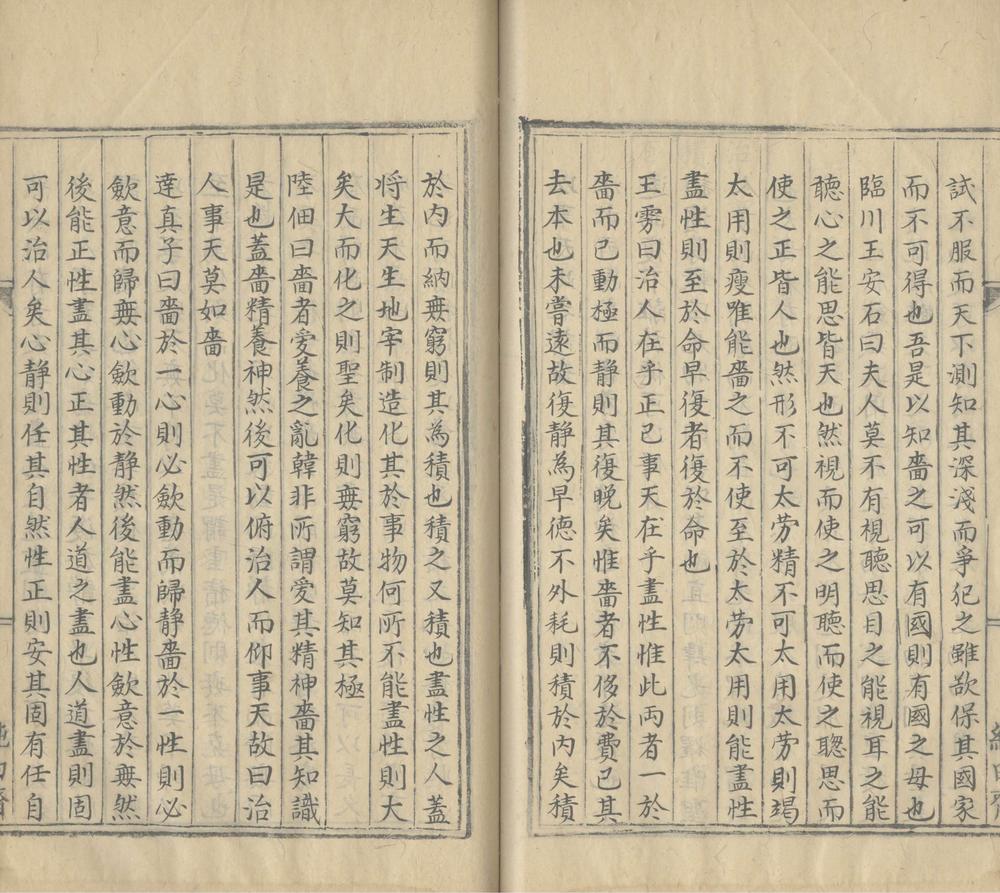 試不服而天下測知其深淺而爭犯之雖欲保其國家
而不可得也吾是以知嗇之可以有國則有國之母也
臨川王安石曰夫人莫不有視聽思目之能視耳之能
聽心之能思皆天也然視而使之明聽而使之聰思而
使之正皆人也然形不可太劳精不可太用太劳則竭
太用則瘦唯能嗇之而不使至於太劳太用則能盡性
盡性則至於命早復者復於命也
王雱曰治人在乎正已事天在乎盡性惟此两者一於
嗇而已動極而静則其復晚矣惟嗇者不侈於費已其
去本也未嘗遠故復静為早德不外耗則積於内矣積
於内而納無窮則其為積也積之又積也盡性之人蓋
将生天生地宰制造化其於事物何所不能盡性則大
矣大而化之則聖矣化則無窮故莫知其極
陸佃曰嗇者爱養之亂韓非所謂爱其精神嗇其知識
是也蓋嗇精養神然後可以俯治人而仰事天故曰治
人事天莫如嗇
達真子曰嗇於一心則必歛動而歸静嗇於一性則必
歛意而歸無心歛動於静然後能盡心性歛意於無然
後能正性盡其心正其性者人道之盡也人道盡則固
可以治人矣心静則任其自然性正則安其固有任自